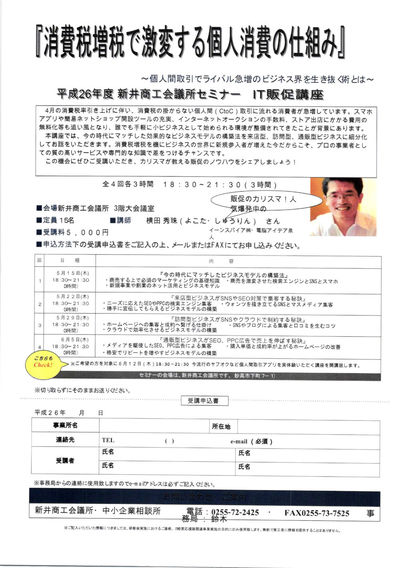 『消費税増税で激変する個人消費の仕組み』
～個人間取引でライバル急増のビジネス界を生き抜く術とは～
平成26年度 新井商工会議所セミナー IT販促講座
4月の消費税率引き上げに伴い、消費税の掛からない個人間（CtoC）取引に流れる消費者が急増しています。スマホ
アプリや簡易ネットショップ開設ツールの充実、インターネットオークションの手数料、ストア出店にかかる費用の
無料化等も追い風となり、誰でも手軽に小ビジネスとして始められる環境が整備されてきたことが背景にあります。
本講座では、今の時代にマッチした効果的なビジネスモデルの構築法を来店型、訪問型、通販型ビジネスに細分化
してお話をいただきます。消費税増税を機にビジネスの世界に新規参入者が増えた今だからこそ、プロの事業者とし
ての質の高いサービスや専門的な知識で差をつけるチャンスです。
この機会にぜひご受講いただき、カリスマが教える販促のノウハウをシェアしましょう！
全4回各3時間 18:30～21:30（3時間）
販促のカリスマ！人
気爆発中の
■会場新井商工会議所 3階大会議室
■定員15名 ■講師 横田 秀珠（よこた・しゅうりん） さん
■受講料5,000円
イーンスパイア㈱・電脳アイデア
■申込方法下の受講申込書をご記入の上、メールまたはFAXにてお申し込みください。
回 日程 内容
1 5月15日(木) 18:30～21:30 (3時間)
『今の時代にマッチしたビジネスモデルの構築法』
・商売する上で必須のマーケティングの基礎知識 ・商売を激変させた検索エンジンとSNSとスマホ
・新規事業や創業のネット活用とビジネスモデル
2 5月22日(木) 18:30～21:30 (3時間)
『来店型ビジネスがSNSやSEO対策で集客する秘訣』
・ニーズに応えたSEOやPPCの検索エンジン集客 ・ウォンツを掴まえるSNSとマスメディア集客
・勝手に宣伝してもらえるビジネスモデルの構築
3 5月29日(木) 18:30～21:30 (3時間)
『訪問型ビジネスがSNSやクラウドで制約する秘訣』
・ホームページへの集客と成約へ繋げる仕掛け ・SNSやブログによる集客と口コミを生むコツ
・クラウドで効率化させるビジネスモデルの構築
4 6月5日(木) 18:30～21:30 (3時間)
『通販型ビジネスがSEO、PPC広告で売上を伸ばす秘訣』
・メディアを駆使したSEO、PPC広告による集客 ・購入単価と成約率が上がるホームページの改善
・格安でリピートを増やすビジネスモデルの構築
こちらも
Check!
※ご希望の方を対象に6月12日（木）18:30～21:30 今流行のヤフオクなど個人間取引アプリを実体験いただく講座を開講します。
セミナーの会場は、新井商工会議所です。妙高市下町7－1）
※切り取らずにそのままお送りください。
受講申込書
平成26年 月 日
事業所名 所在地
連絡先 TEL ( ) e-mail（必須）
受講者 氏名 氏名
氏名 氏名
※事務局からの連絡に使用致しますのでe-mailアドレスは必ずご記入ください。
新井商工会議所・中小企業相談所 電話：0255-72-2425 ・ FAX0255-73-7525 事
務局：鈴木